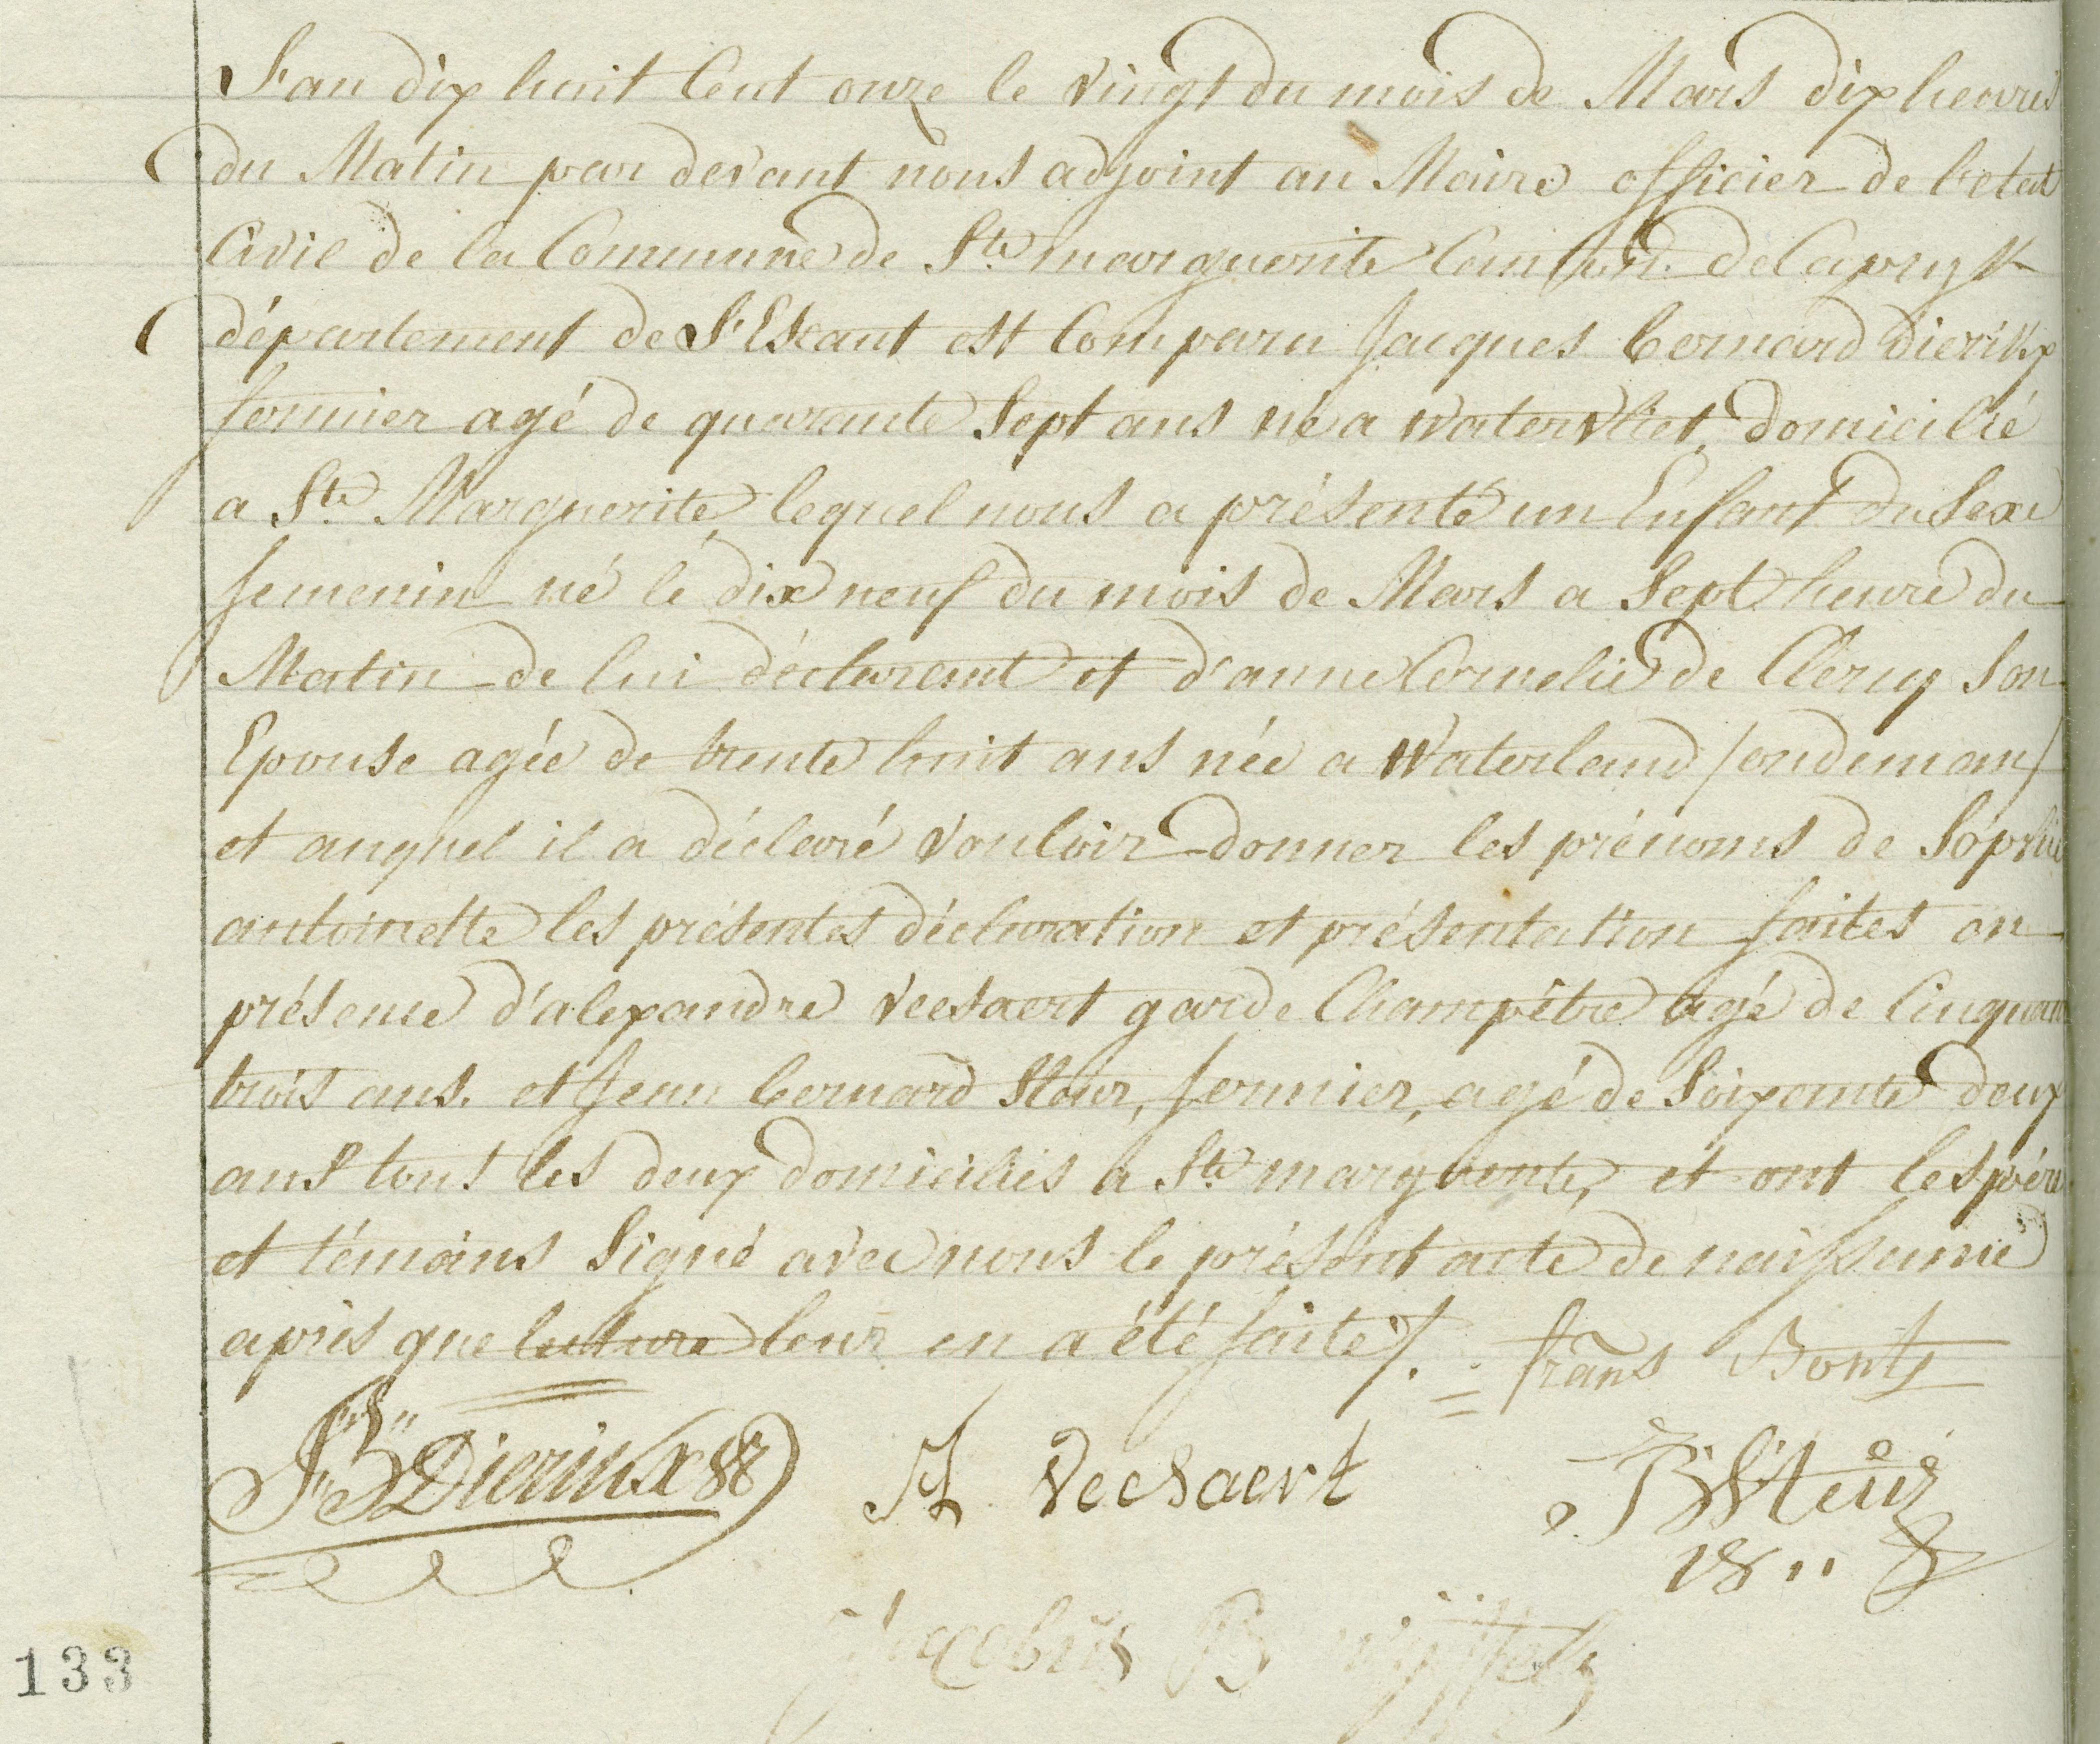 L'an dix huit Cent onze le vingt du mois de Mars dix heures
du Matin par devant nous adjoint au Maire officier de l'etat
Civil de la Commune de Ste marguerite Canton de Capryk
département de L'Escaut est Comparu Jacques bernard dierikx
fermier agé de quarante Sept ans né a watervliet, domicilié
a Ste Marguerite, lequel nous a présenté un Enfant du Sexe
femenin né le dix neuf du mois de Mars a Sept heure du
Matin de lui déclarant et d'anne Cornelie de Clercq Son
Epouse agée de trente huit ans née a Waterland /oudeman/
et auquel il a déclaré vouloir donner les prénoms de Sophie
antoinette les présentes déclaration et présentation faites en
présence d'alexandre veesaert garde Champêtre agé de Cinquan
trois ans. et Jean bernard Steur, fermier, agé de Soixante deux
ans tous les deux domiciliés a Ste marguerite, et ont les père
et témoins Signé avec nous le présent acte de naissance
aprés que lecture leur en a été faite /. frans Bonts
JB Dierinkx A Veesaert JB Steur
1811
Jacobus
133